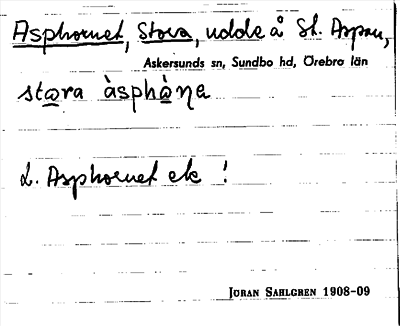 Asphornet, Stora, udde å St. Aspan,
Askersunds sn, Sundbo hd, Örebro län
stora àsphà̱ɳa
L. Asphornet etc !
JÖRAN SAHLGREN 1908-09